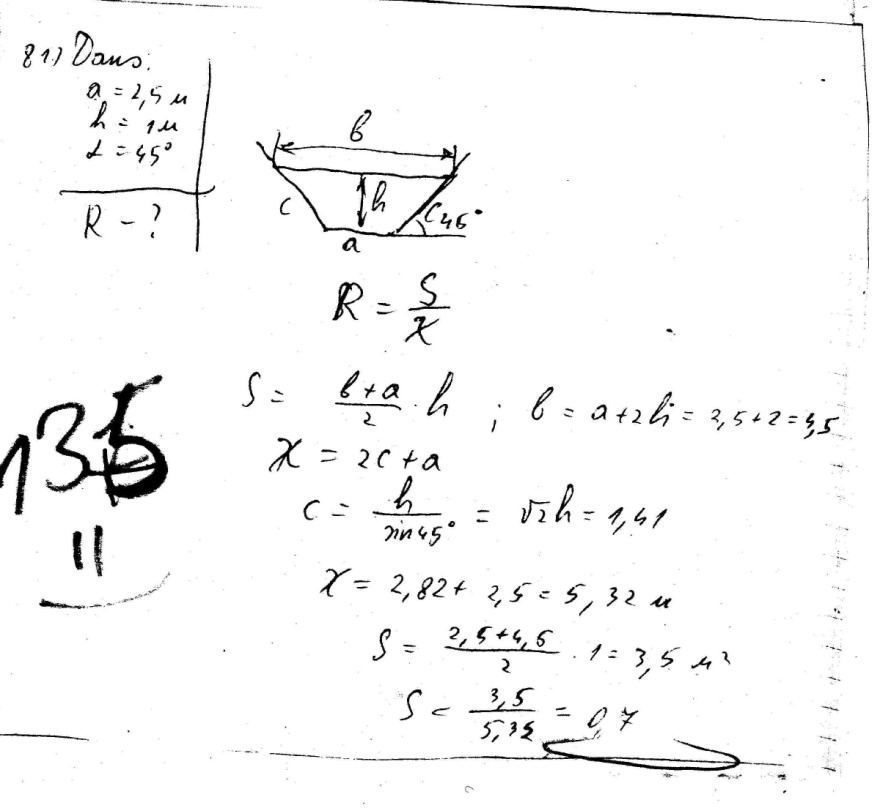 81) Дано:
a = 2,5 м
h = 1 м
α = 45°
R - ?
b
c
h
c 45°
a
R = S/χ
S = (b+a)/2 · h ; b = a+2h = 2,5+2 = 4,5
χ = 2c + a
c = h/sin45° = √2h = 1,41
χ = 2,82 + 2,5 = 5,32 м
S = (2,5+4,5)/2 · 1 = 3,5 м²
S = 3,5/5,32 = 0,7
11